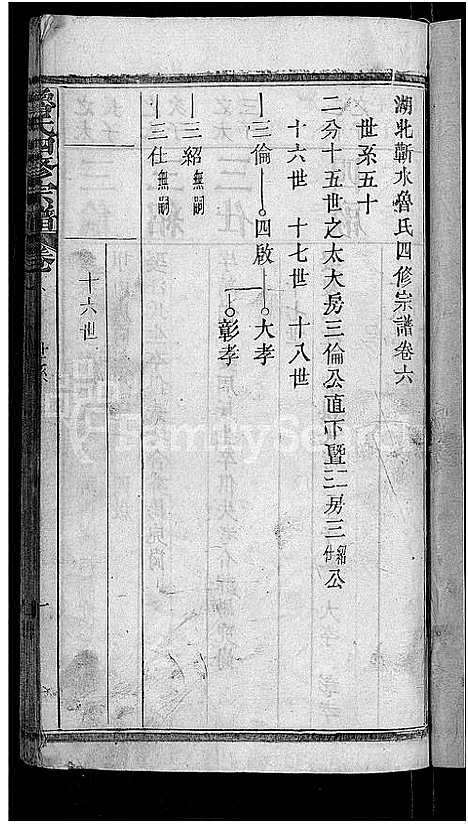 湖北蘄水魯氏四修宗譜卷六
世系五十
二分十五世之太大房三倫公直下暨二房三紹仕公
十六世 十七世 十八世
三倫 四啟 大孝
彰孝
三紹 無嗣
三仕 無嗣
十六世
FamilySearch